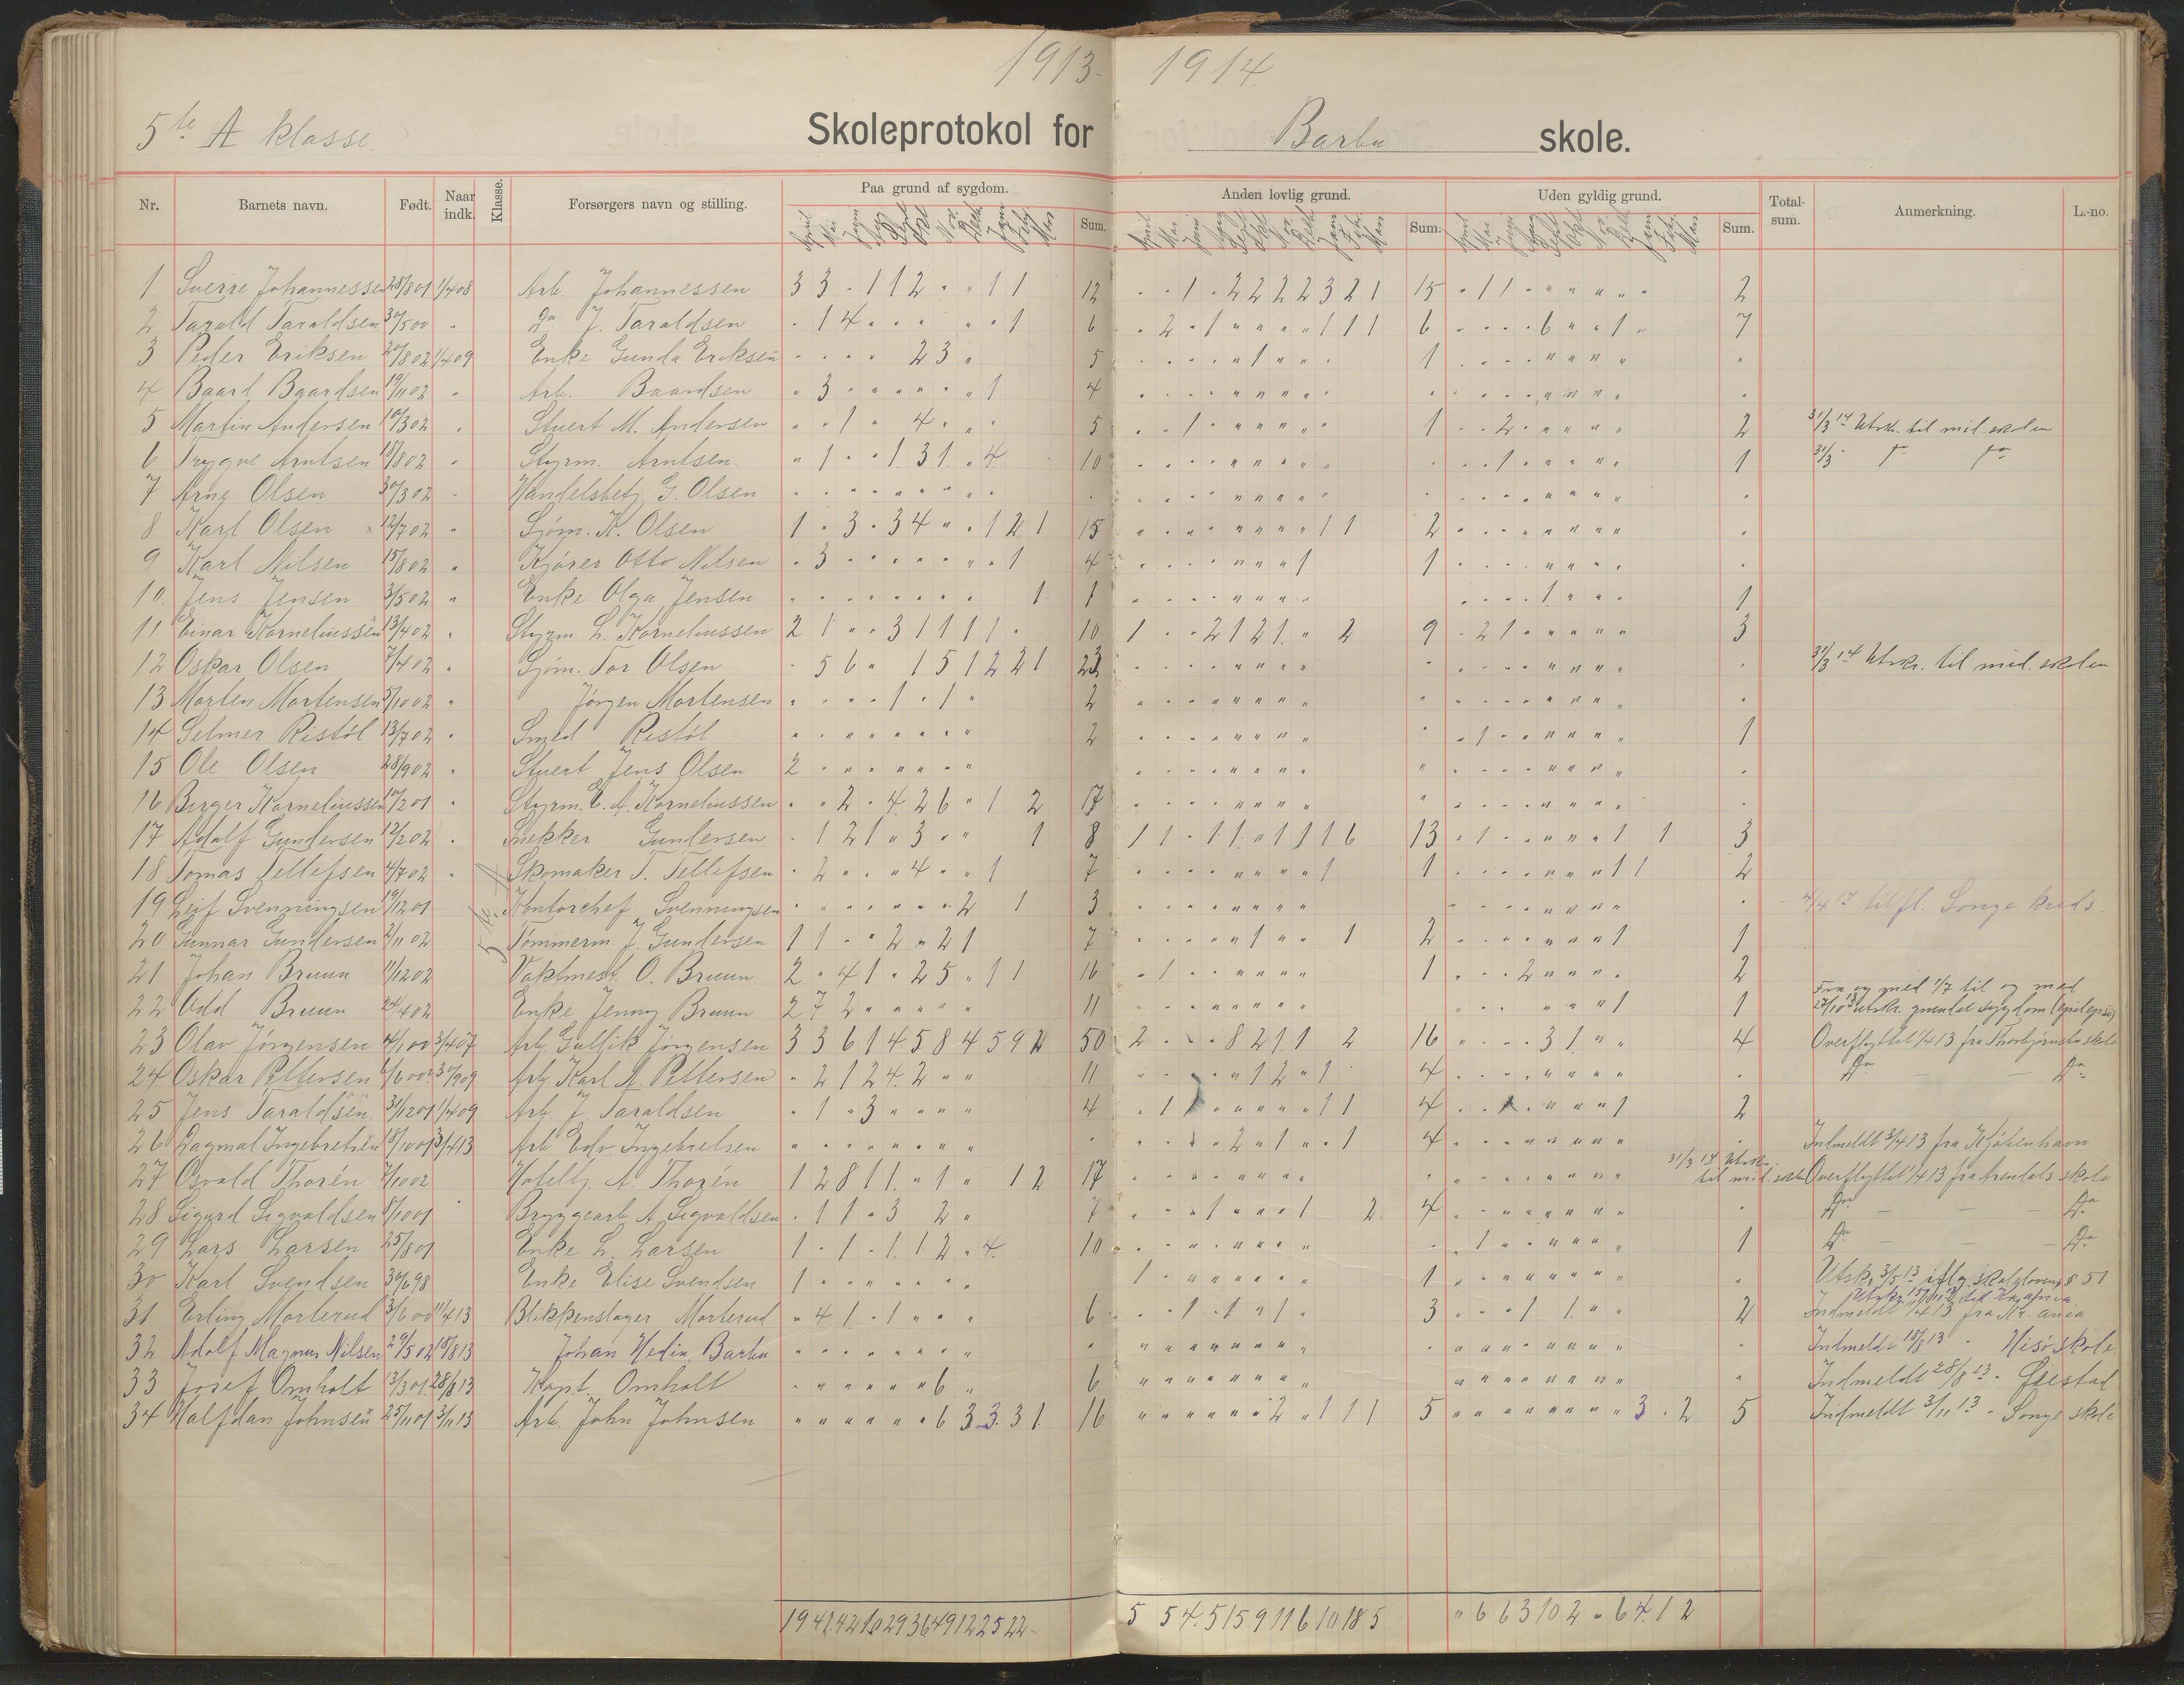 1913- 1914
5te A klasse. Skoleprotokol for Barbu skole.
Nr. Barnets navn. Født. Naar indk. Klasse. Forsørgers navn og stilling. Paa grund af sygdom. Sum. Anden lovlig grund. Sum. Uden gyldig grund. Sum. Total-sum. Anmerkning. L.-no.
1 Sverre Johannessen 28/8 01 1/4 08 Arb. Johannessen 3 3 " 1 1 2 " " 1 1 12 " " 1 " 2 2 2 2 3 2 1 15 " 1 1 " " " " " " 2
2 Tarald Taraldsen 30/5 00 " Do J. Taraldsen " 1 4 " " " " " 1 6 " 2 " 1 " " " " 1 1 1 6 " " " " 6 " " 1 " 7
3 Peder Eriksen 20/8 02 1/4 09 Enke Gunda Eriksen " " " " 2 3 " 5 1
4 Baard Baardsen 19/11 02 " Arb. Baardsen " 3 " " " " " " 1 4
5 Martin Andersen 10/3 02 " Stuert M. Andersen " " 1 " 4 " " " 5 1 2 2 31/3 14 Utskr. til mid. skolen
6 Trygve Arntsen 18/8 02 " Styrm. Arntsen. " 1 " " 1 3 1 " 4 10 1 1 31/3 -
7 Arne Olsen 30/3 02 " Handelsbetj. G. Olsen
8 Karl Olsen 12/7 02 " Sjøm. K. Olsen 1 " 3 " 3 4 " " 1 2 1 15 1 1 2
9 Karl Nilsen 15/8 02 " Kjører Otto Nilsen " 3 " " " " " " 1 4 1 1
10 Jens Jensen 3/5 02 " Enke Olga Jensen 1 1 1 1
11 Einar Korneliussen 13/4 02 " Styrm. L. Korneliussen 2 1 " " 3 1 1 1 1 " 10 1 " " 2 1 2 1 " 2 9 " 2 1 " " " " " 3
12 Oskar Olsen 7/4 02 " Sjøm. Tor Olsen " 5 6 " 1 5 1 2 2 1 23 31/3 14 Utskr. til mid. skolen
13 Morten Mortensen 5/10 02 " Jørgen Mortensen " " " " 1 " 1 " 2
14 Selmer Ristøl 13/7 02 " Smed Ristøl 2 1 1
15 Ole Olsen 28/9 02 " Stuert Jens Olsen 2
16 Birger Korneliussen 10/2 01 " Styrm. E. A. Korneliussen " " 2 " 4 2 6 " 1 2 17
17 Adolf Gundersen 12/2 02 " Snekker Gundersen " 1 2 1 " 3 " " 1 8 1 1 " 1 1 " 1 1 1 6 13 " 1 " " " " " 1 1 3
18 Tomas Tellefsen 4/7 02 " Skomaker T. Tellefsen " 2 " " " 4 " " 1 7 1 1 1 1 2
19 Leif Svenningsen 19/12 01 Kontorchef Svenningsen 2 1 3 4/4 14 tilfl. Songe kreds.
20 Gunnar Gundersen 2/11 02 Tømmerm. J. Gundersen 1 1 " " 2 " 2 1 7 1 1 2 1 1
21 Johan Bruun 11/12 02 Vaktmest. O. Bruun 2 " 4 1 " 2 5 " 1 1 16 1 1 2 2
Fra og med 1/7 til og med
22 Odd Bruun 24/4 02 Enke Jenny Bruun 2 7 2 " " " " " 11 1 1 27/10 13 utskr. grundet sygdom (epilepsi)
23 Olav Jørgensen 4/1 00 3/4 07 Arb. Gullik Jørgensen 3 3 6 1 4 5 8 4 5 9 2 50 2 " " " 8 2 1 1 2 16 " " " " 3 1 " " 4 Overflyttet 1/4 13 fra Thorbjørnsbu skole
24 Oskar Pettersen 6/6 00 30/9 09 Arb. Karl A. Pettersen " 2 1 2 4 2 " " 11 1 2 " 1 4 Do — Do
25 Jens Taraldsen 31/12 01 1/4 09 Arb. J. Taraldsen " 1 " 3 " " " " 4 " 1 1 1 4 1 2
26 Dagmal Ingebretsen 18/10 01 3/4 13 Arb. Edv Ingebretsen 2 " 1 " " 1 4 Indmeldt 3/4 13 fra Kjøbenhavn
31/3 14 Utskr. til mid. skolen
27 Osvald Thorén 7/10 02 Hotelbj. A. Thorén 1 2 8 1 1 " 1 " 1 2 17 Overflyttet 1/4 13 fra Arendals skole
28 Sigurd Sigvaldsen 8/10 01 Bryggearb A Sigvaldsen " 1 1 " 3 2 " 7 1 1 2 4 Do — — Do
29 Lars Larsen 25/8 01 Enke L. Larsen 1 " 1 " 1 1 2 " 4 10 1 1 Do — — Do
30 Karl Svendsen 30/6 98 Enke Elise Svendsen 1 1 1 Utskr. 3/5 13 iflg. skoleloven § 51
31 Erling Morterud 3/6 00 11/4 13 Blikkenslager Morterud " 4 1 " 1 " " " 6 1 1 1 3 1 1 2 Indmeldt 11/4 13 fra Kr.ania
32 Adolf Magnus Nilsen 29/5 02 18/8 13 Johan Hedin, Barbu Indmeldt 18/8 13 - Hisø skole
33 Josef Omholt 13/3 01 28/8 13 Kapt. Omholt 6 6 Indmeldt 28/8 13 -
34 Halfdan Johnsen 25/11 01 3/11 13 Arb. John Johnsen 6 3 3 3 1 16 2 " 1 1 1 5 3 " 2 5 Indmeldt 3/11 13 - Songe skole
19 41 42 10 29 36 49 12 25 22 5 5 4 5 15 9 11 6 10 18 5 " 6 6 3 10 2 " 6 4 1 2